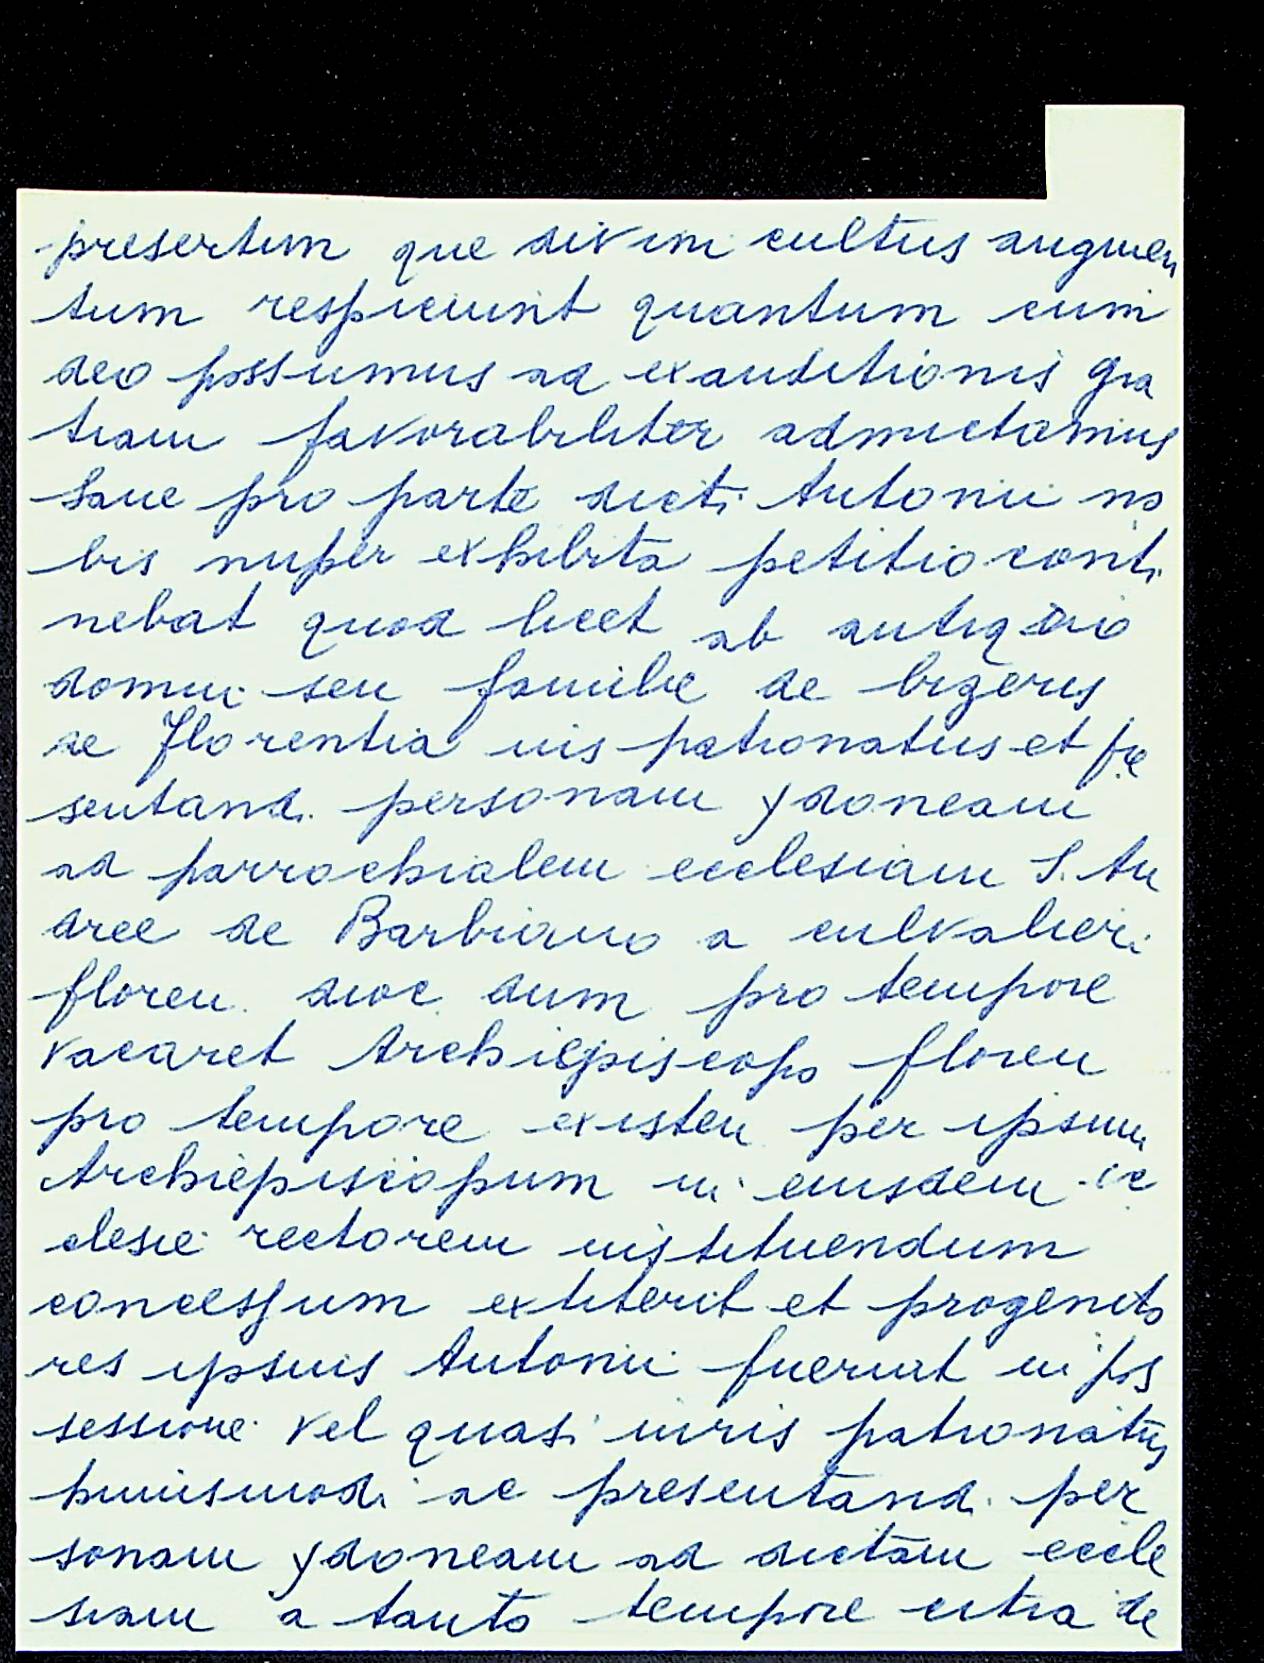 presertim que divini cultus augmen
tum respiciunt quantum cum
deo possumus ad exauditionis gra
tiam favorabiliter admictamus
Sane pro parte dicti Antonii no
bis nuper exhibita petitio conti
nebat quod licet ab antiquo
domui seu familie de bizeris
de Florentia ius patronatus et pre
sentand. personam ydoneam
ad parrochialem ecclesiam S. An
dree de Barbiano a
floren. dioc dum pro tempore
vacaret Archiepiscopo floren
pro tempore existen per ipsum
Archiepiscopum in eiusdem ec
clesie rectorem instituendum
concessum extiterit et progenito
res ipsius Antonii fuerint in pos
sessione vel quasi iuris patronatus
huiusmodi ac presentand. per
sonam ydoneam ad dictam eccle
siam a tanto tempore citra de